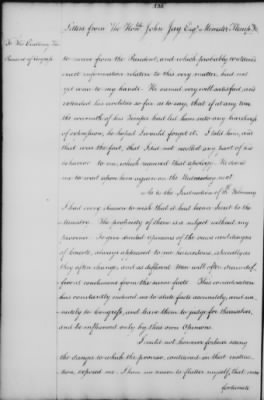 Letters from The Honble John Jay Esqr Minister Plenipo. &c
To His Excellency The
President of Congress
to receive from the President, and which probably contained
exact information relative to this very matter, had not
yet come to my hands. He seemed very well satisfied, and
extended his civilities so far as to say, that if at any time
the warmth of his Temper had led him into any harshness
of expression, he hoped I would forget it. I told him, and
that was the fact, that I did not recollect any part of his
behavior to me, which required that apology. He desired
me to wait upon him again on the Wednesday next
As to the Instruction of February
I had every reason to wish that it had been sent to the
ministry. The propriety of them is a subject without my
province. To give decided opinions of the views and designs
of Courts, always appeared to me hazardous, especially as
they often change, and as different Men will often draw dif-
ferent conclusions from the same facts. This consideration
has constantly induced me to state facts accurately, and mi-
nutely to Congress, and leave them to judge for themselves,
and be influenced only by their own opinions.
I could not however forbear seeing
the danger to which the promise, contained in that instruc-
tion, exposed me. I have no reason to flatter myself, that more
fortunate